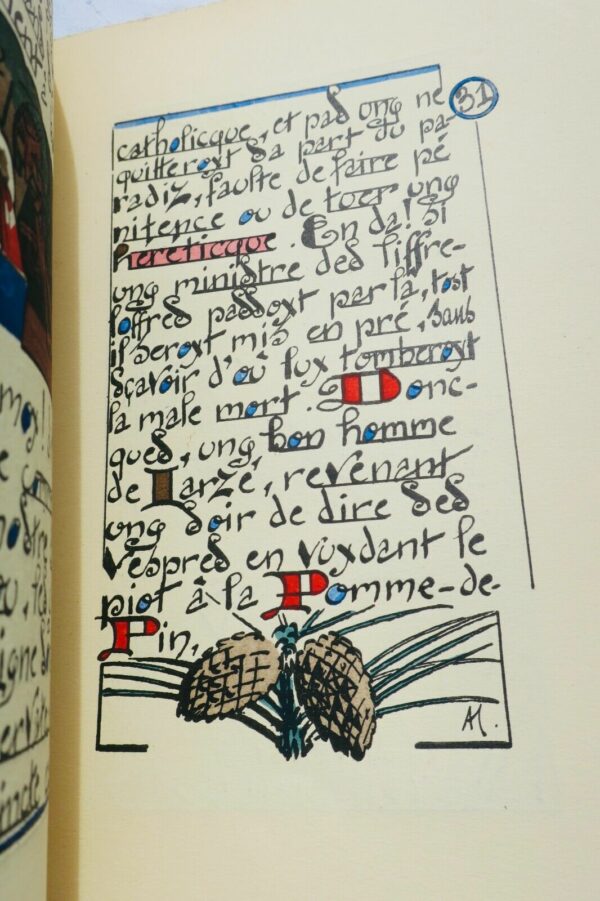 31
catholicque, et pas ung ne
quitteroyt sa part du pa-
radiz, faulte de faire pé
nitence ou de tuer ung
hereticque. En da! Si
ung ministre des liffre-
loffres passoyt par là, tost
il seroyt mis en pré, sans
sçavoir d'où luy tomberoyt
la male mort. Donc-
ques, ung bon homme
de Jarzé, revenant
ung soir de dire ses
vespres en vuydant le
piot à la Pomme-de-
Pin,
AM.